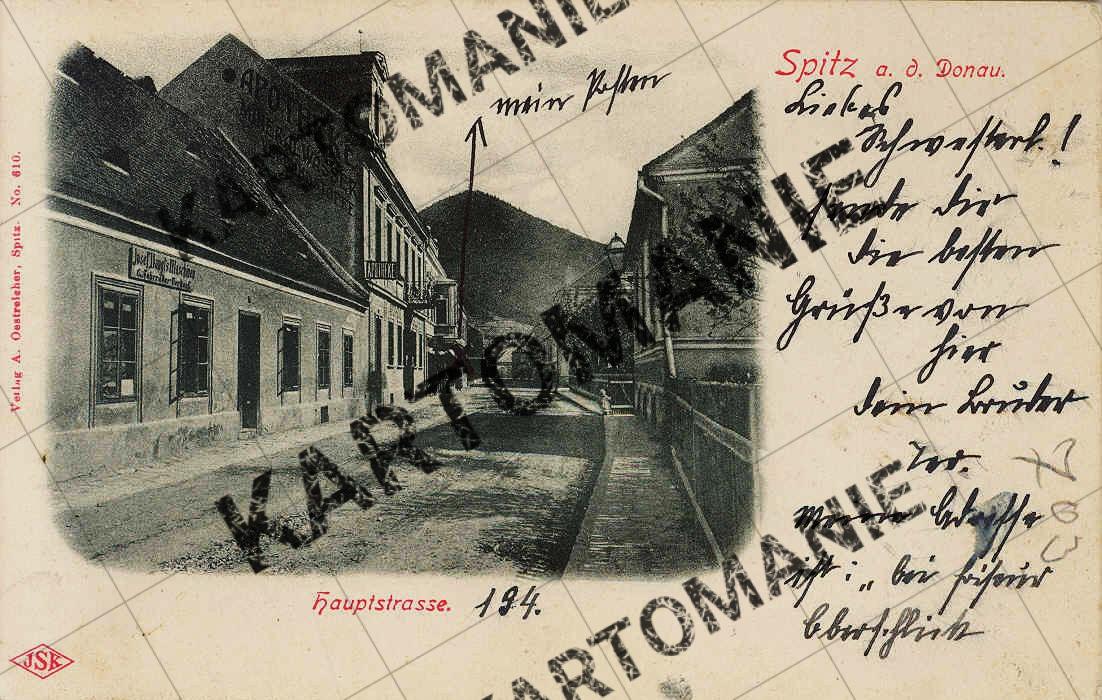 Spitz a. d. Donau.
mein Posten
Liebes
Schwesterl.!
sende dir
die besten
Grüße von
hier
dein Bruder
Meine Adresse
ist: „ bei Friseur
Oberschlick
APOTHEKE
APOTHEKE
Verlag A. Oestreicher, Spitz. No. 610.
Hauptstrasse. 194.
JSK
KARTOMANIE
KARTOMANIE
KARTOMANIE
KARTOMANIE
KARTOMANIE